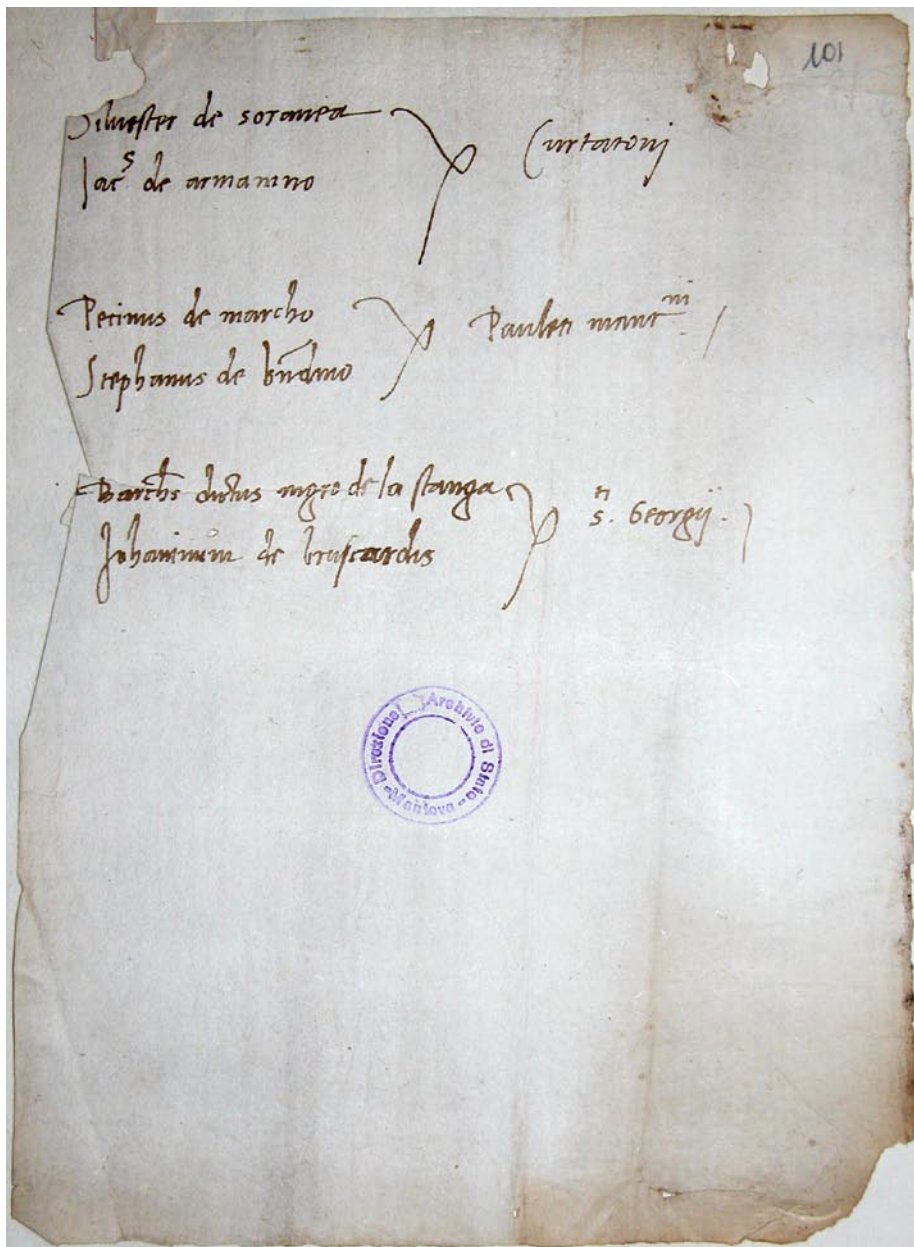 101
Silvester de soranea
Jac^s de armanino
Curtatonj
Pecinus de marcho
Stephanus de
Pauleti mant^ni
dictus nigro de la stanga
Johanninum de bruscardis
s.^ti Georgij.
Direzione Archivio di Stato
- Mantova -